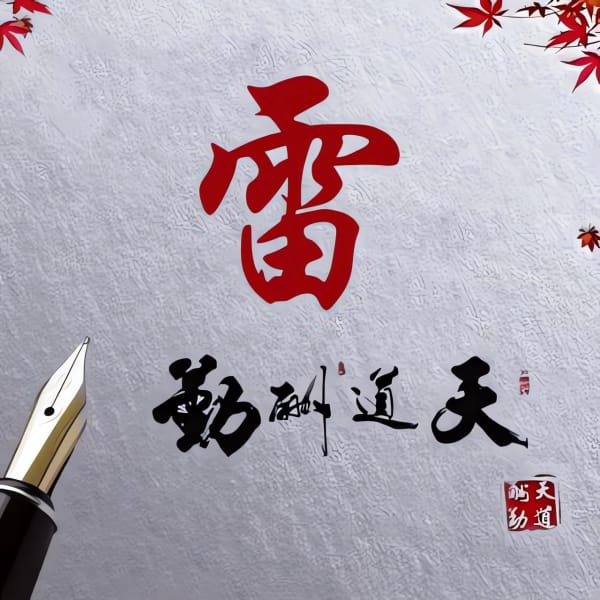 雷
天道酬勤
天道
酬勤